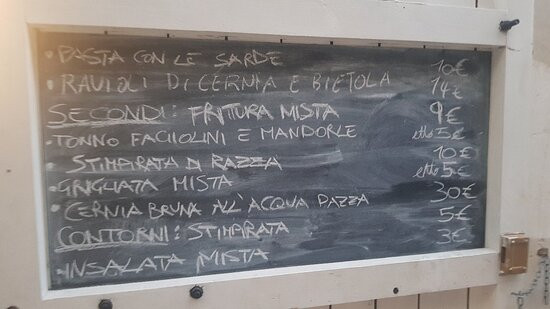 · PASTA CON LE SARDE 10€
· RAVIOLI DI CERNIA E BIETOLA 14€
SECONDI: FRITURA MISTA 9€
· TONNO FAGIOLINI E MANDORLE etto 5€
· STIMPIRATA DI RAZZA 10€
· GRIGLIATA MISTA etto 5€
· CERNIA BRUNA ALL'ACQUA PAZZA 30€
CONTORNI: STIMPIRATA 5€
· INSALATA MISTA 3€